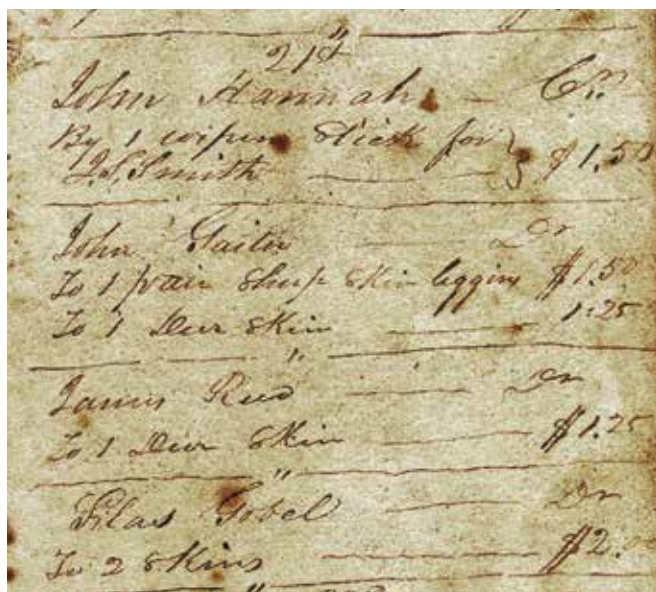 21st
John Hannah — Cr.
By 1 wipen Stick for
J.S. Smith — } $1.50
John Gaiter — Dr
To 1 pair Sheep Skin leggins $1.50
To 1 Deer Skin — 1.25
"
James Reed — Dr
To 1 Deer Skin — $1.25
"
Silas Gobel — Dr
To 2 Skins — $2.